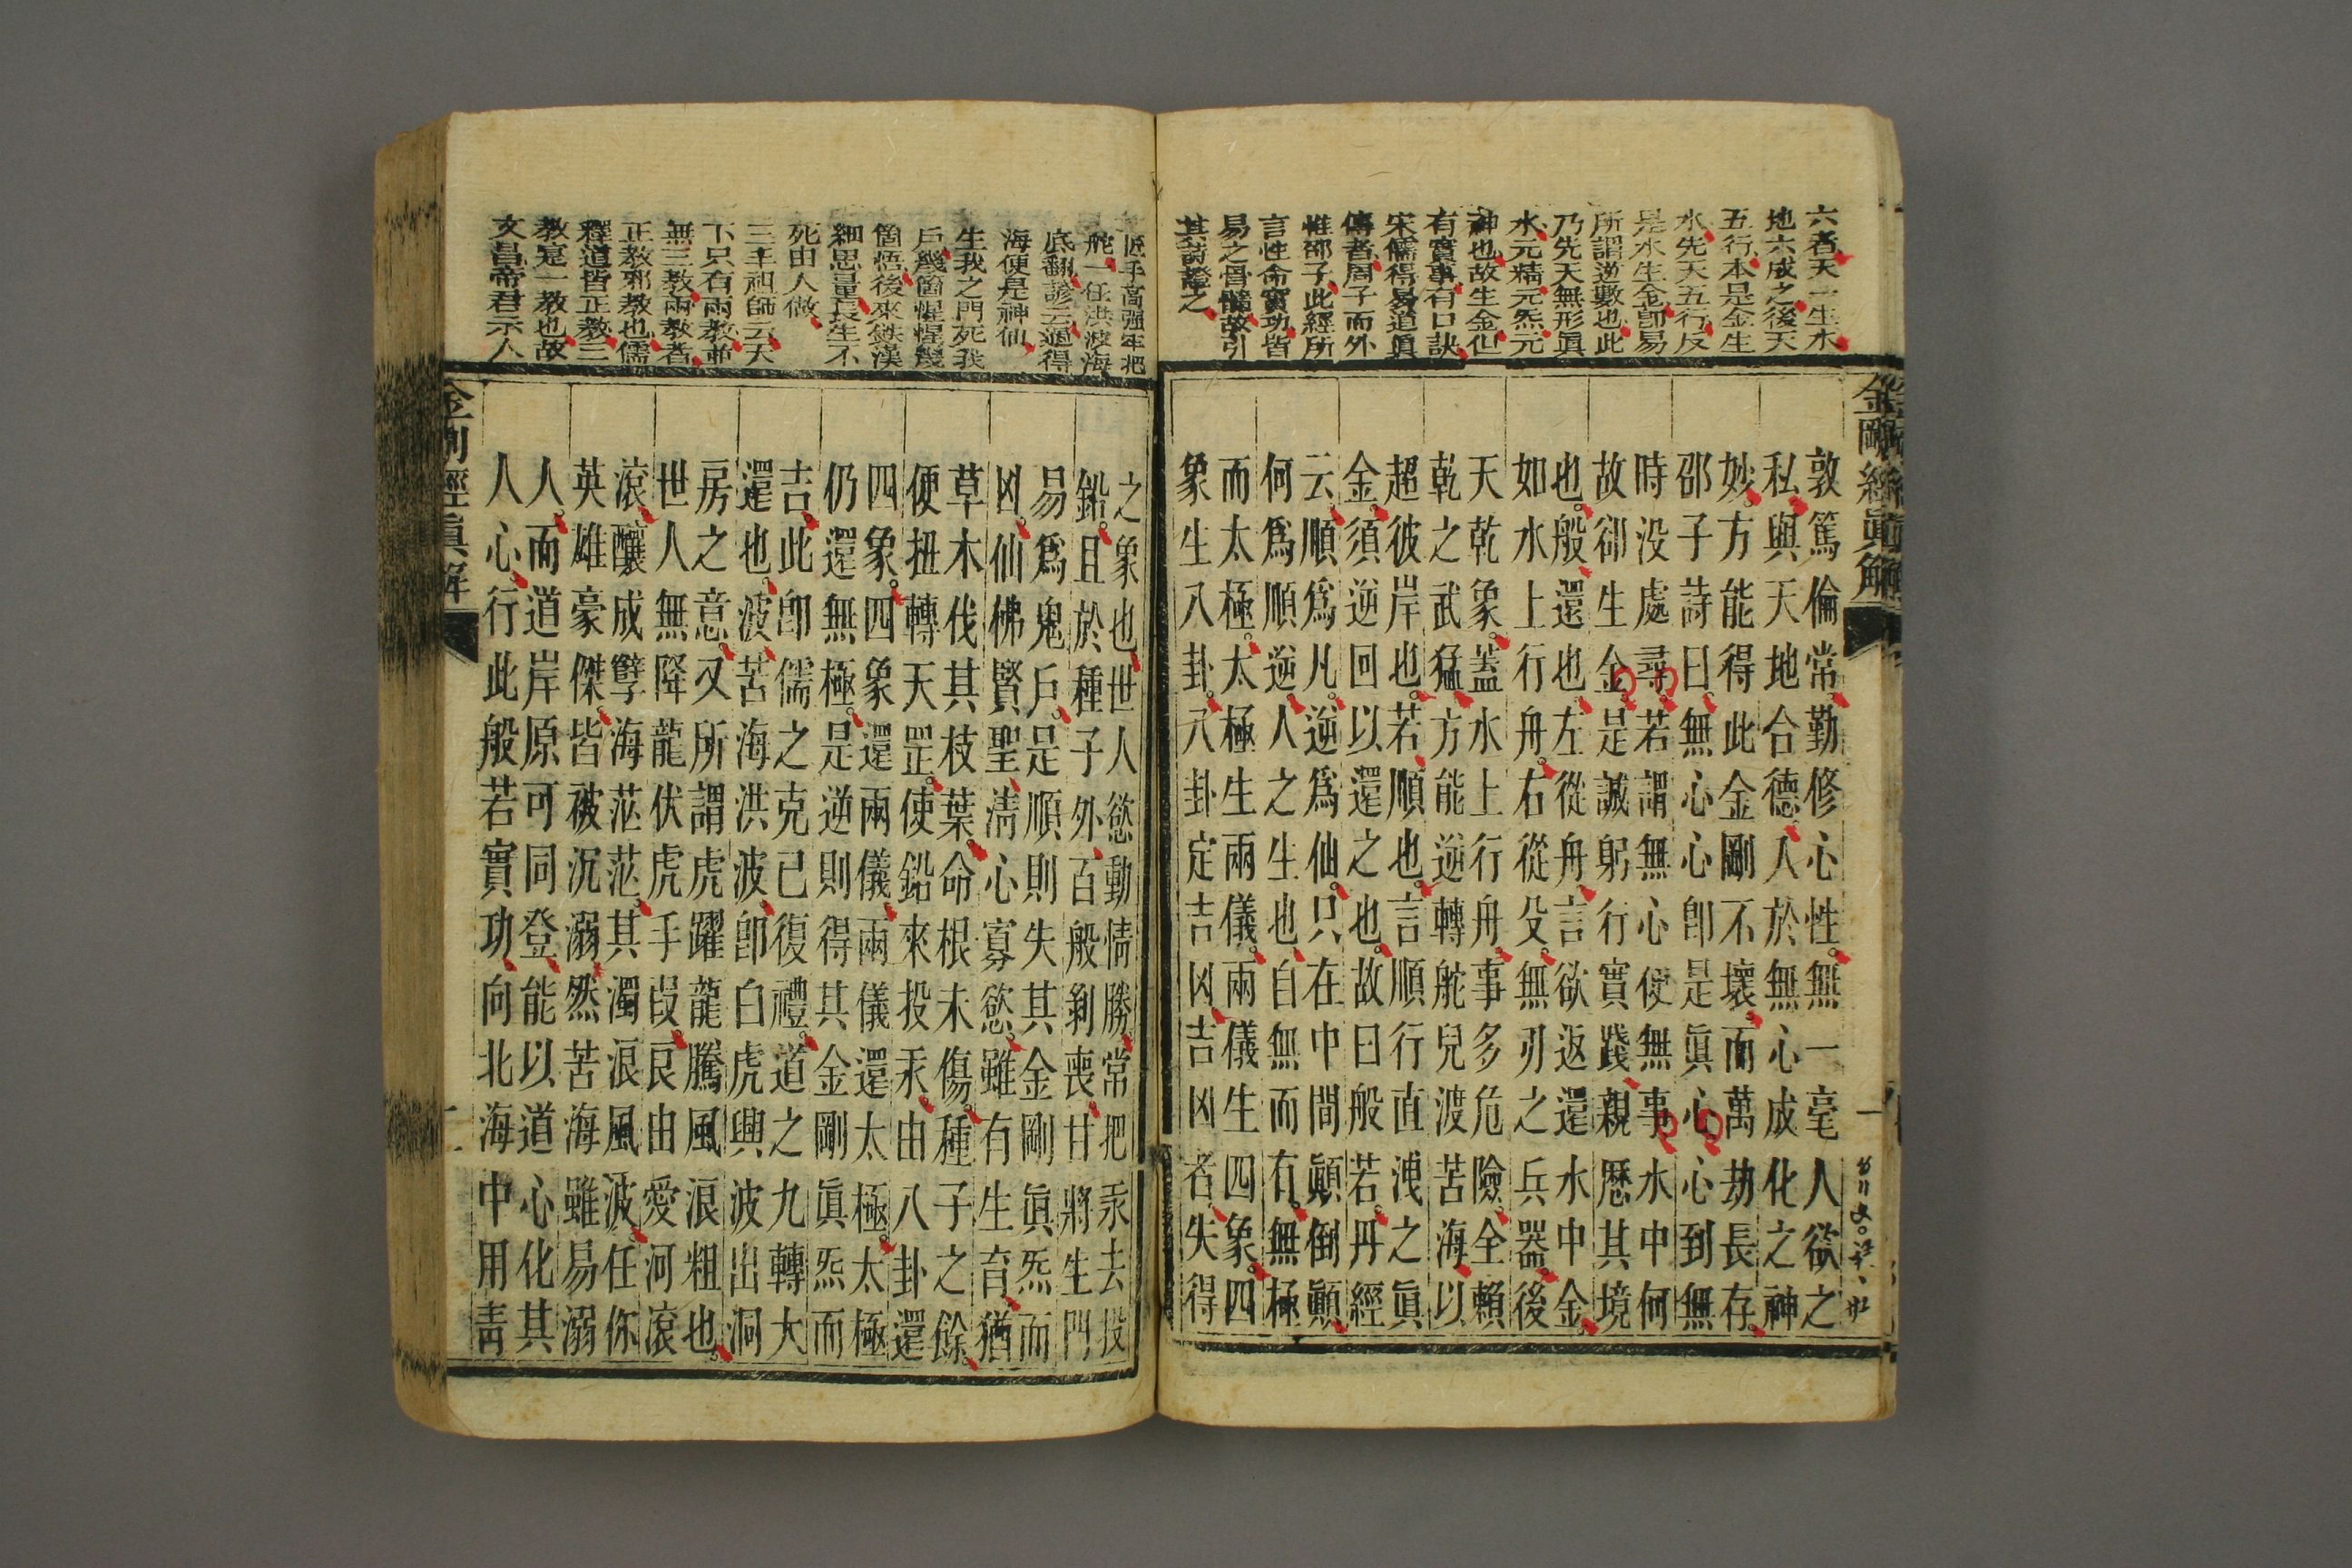 金剛經眞解
六者天一生水
地六成之後天
五行本是金生
水先天五行反
是水生金卽易
所謂逆數也此
乃先天無形眞
水元精元炁元
神也故生金仙
有實事有口訣
宋儒得易道眞
傳者周子而外
惟邵子此經所
言性命實功皆
易之骨髓故引
其詩證之
敦篤倫常勤修心性無一毫人欲之
私與天地合德人於無心成化之神
妙方能得此金剛不壞而萬劫長存
邵子詩曰無心心卽是眞心心到無
時没處尋若謂無心便無事水中何
故卻生金是誠躬行實踐親歷其境
也般還也左從舟言欲返還水中金
如水上行舟右從殳無刃之兵器後
天乾象蓋水上行舟事多危險全賴
乾之武猛方能逆轉舵兒渡苦海以
超彼岸也若順也言順行直洩之眞
金須逆回以還之也故曰般若丹經
云順爲凡逆爲仙只在中間顚倒顚
何爲順逆人之生也自無而有無極
而太極太極生兩儀兩儀生四象四
象生八卦八卦定吉凶吉凶者失得
匠手高强牢把
舵一任洪波海
底翻諺云過得
海便是神仙
生我之門死我
戶幾箇惺惺幾
箇悟後來鉄漢
細思量長生不
死由人做
三丰祖師云天
下只有兩教並
無三教兩教者
正教邪教也儒
釋道皆正教三
教寔一教也故
文昌帝君示人
之象也世人慾動情勝常把汞去投
鉛且於種子外百般剝喪甘將生門
易爲鬼戶是順則失其金剛眞炁而
凶仙佛賢聖淸心寡慾雖有生育猶
草木伐其枝葉命根未傷種子之餘
便扭轉天罡使鉛來投汞由八卦還
四象四象還兩儀兩儀還太極太極
仍還無極是逆則得其金剛眞炁而
吉此卽儒之克己復禮道之九轉大
還也波苦海洪波卽白虎興波出洞
房之意又所謂虎躍龍騰風浪粗也
世人無降龍伏虎手段良由愛河滾
滾釀成孽海茫茫其濁浪風波任你
英雄豪傑皆被沉溺然苦海雖易溺
人而道岸原可同登能以道心化其
人心行此般若實功向北海中用靑
金剛經眞解